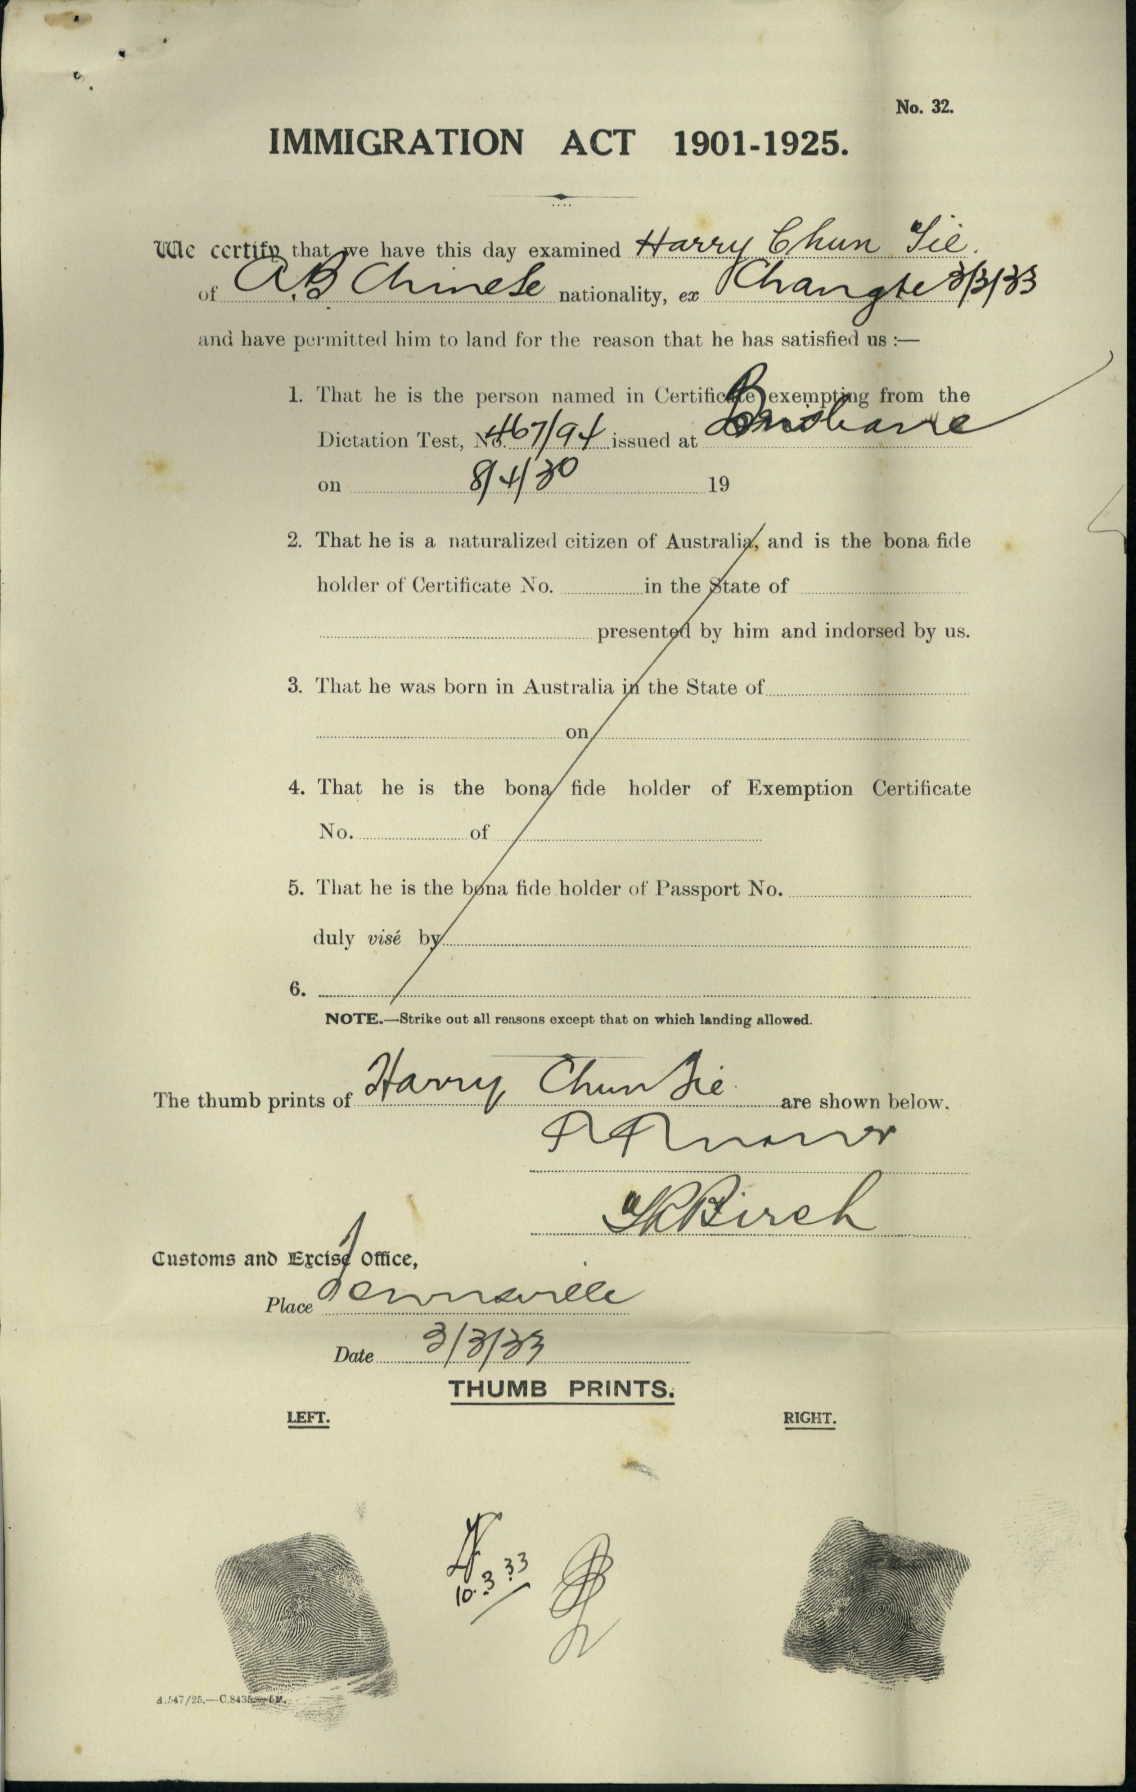 No. 32.
IMMIGRATION ACT 1901-1925.
We certify that we have this day examined Harry Chun Tie.
of A.B. Chinese nationality, ex Changte 3/3/33
and have permitted him to land for the reason that he has satisfied us :—
1. That he is the person named in Certificate exempting from the
Dictation Test, No. 467/94 issued at Brisbane
on 8/4/30 19
2. That he is a naturalized citizen of Australia, and is the bona fide
holder of Certificate No. in the State of
presented by him and indorsed by us.
3. That he was born in Australia in the State of
on
4. That he is the bona fide holder of Exemption Certificate
No. of
5. That he is the bona fide holder of Passport No.
duly visé by
6.
NOTE.—Strike out all reasons except that on which landing allowed.
The thumb prints of Harry Chun Tie are shown below.
Birch
Customs and Excise Office,
Place Townsville
Date 3/3/33
THUMB PRINTS.
LEFT. RIGHT.
10.3.33
A.547/25.—C.8435.—5M.